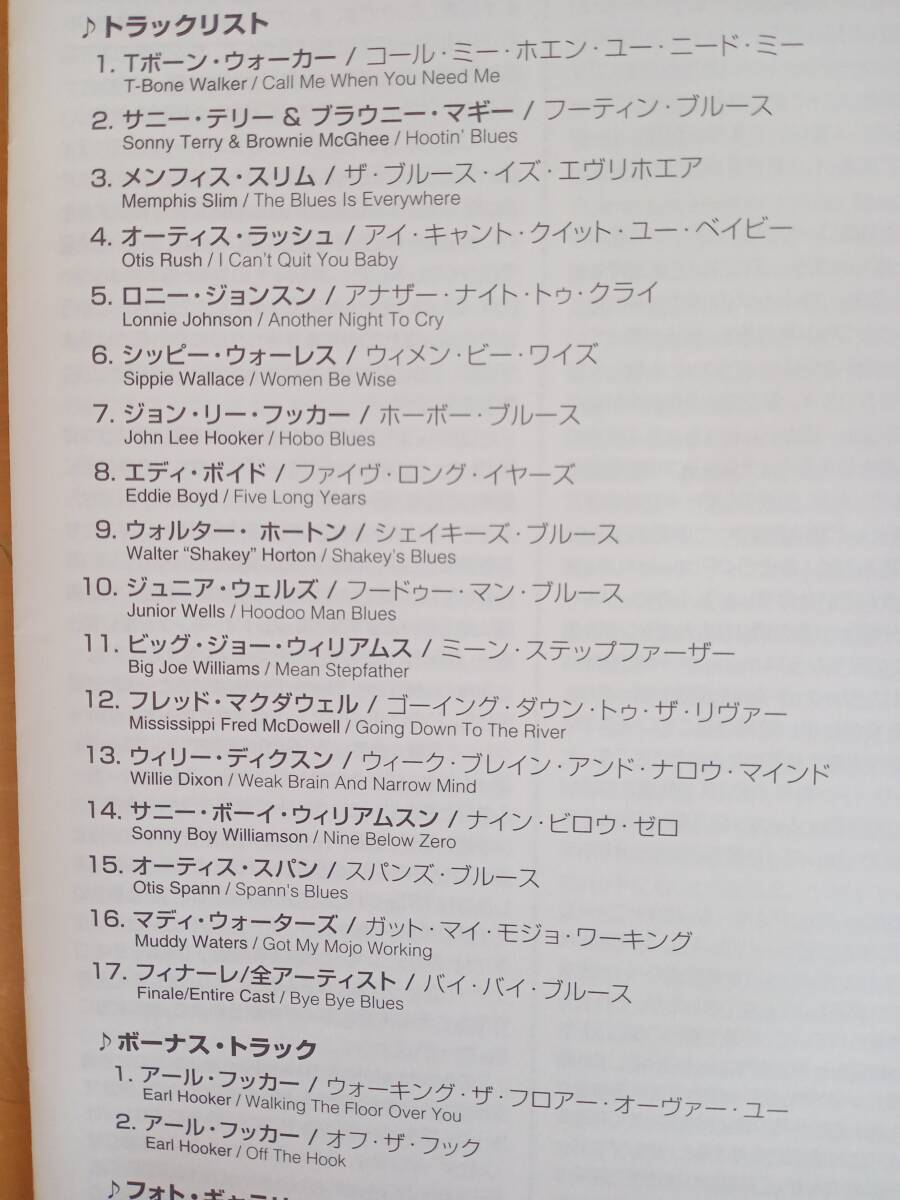 ♪トラックリスト
1. Tボーン・ウォーカー / コール・ミー・ホエン・ユー・ニード・ミー
T-Bone Walker / Call Me When You Need Me
2. サニー・テリー & ブラウニー・マギー / フーティン・ブルース
Sonny Terry & Brownie McGhee / Hootin' Blues
3. メンフィス・スリム / ザ・ブルース・イズ・エヴリホエア
Memphis Slim / The Blues Is Everywhere
4. オーティス・ラッシュ / アイ・キャント・クイット・ユー・ベイビー
Otis Rush / I Can't Quit You Baby
5. ロニー・ジョンスン / アナザー・ナイト・トゥ・クライ
Lonnie Johnson / Another Night To Cry
6. シッピー・ウォーレス / ウィメン・ビー・ワイズ
Sippie Wallace / Women Be Wise
7. ジョン・リー・フッカー / ホーボー・ブルース
John Lee Hooker / Hobo Blues
8. エディ・ボイド / ファイヴ・ロング・イヤーズ
Eddie Boyd / Five Long Years
9. ウォルター・ ホートン / シェイキーズ・ブルース
Walter “Shakey” Horton / Shakey's Blues
10. ジュニア・ウェルズ / フードゥー・マン・ブルース
Junior Wells / Hoodoo Man Blues
11. ビッグ・ジョー・ウィリアムス / ミーン・ステップファーザー
Big Joe Williams / Mean Stepfather
12. フレッド・マクダウェル / ゴーイング・ダウン・トゥ・ザ・リヴァー
Mississippi Fred McDowell / Going Down To The River
13. ウィリー・ディクスン / ウィーク・ブレイン・アンド・ナロウ・マインド
Willie Dixon / Weak Brain And Narrow Mind
14. サニー・ボーイ・ウィリアムスン / ナイン・ビロウ・ゼロ
Sonny Boy Williamson / Nine Below Zero
15. オーティス・スパン / スパンズ・ブルース
Otis Spann / Spann's Blues
16. マディ・ウォーターズ / ガット・マイ・モジョ・ワーキング
Muddy Waters / Got My Mojo Working
17. フィナーレ/全アーティスト / バイ・バイ・ブルース
Finale/Entire Cast / Bye Bye Blues
♪ボーナス・トラック
1. アール・フッカー / ウォーキング・ザ・フロアー・オーヴァー・ユー
Earl Hooker / Walking The Floor Over You
2. アール・フッカー / オフ・ザ・フック
Earl Hooker / Off The Hook
♪フォト・ギャラリ